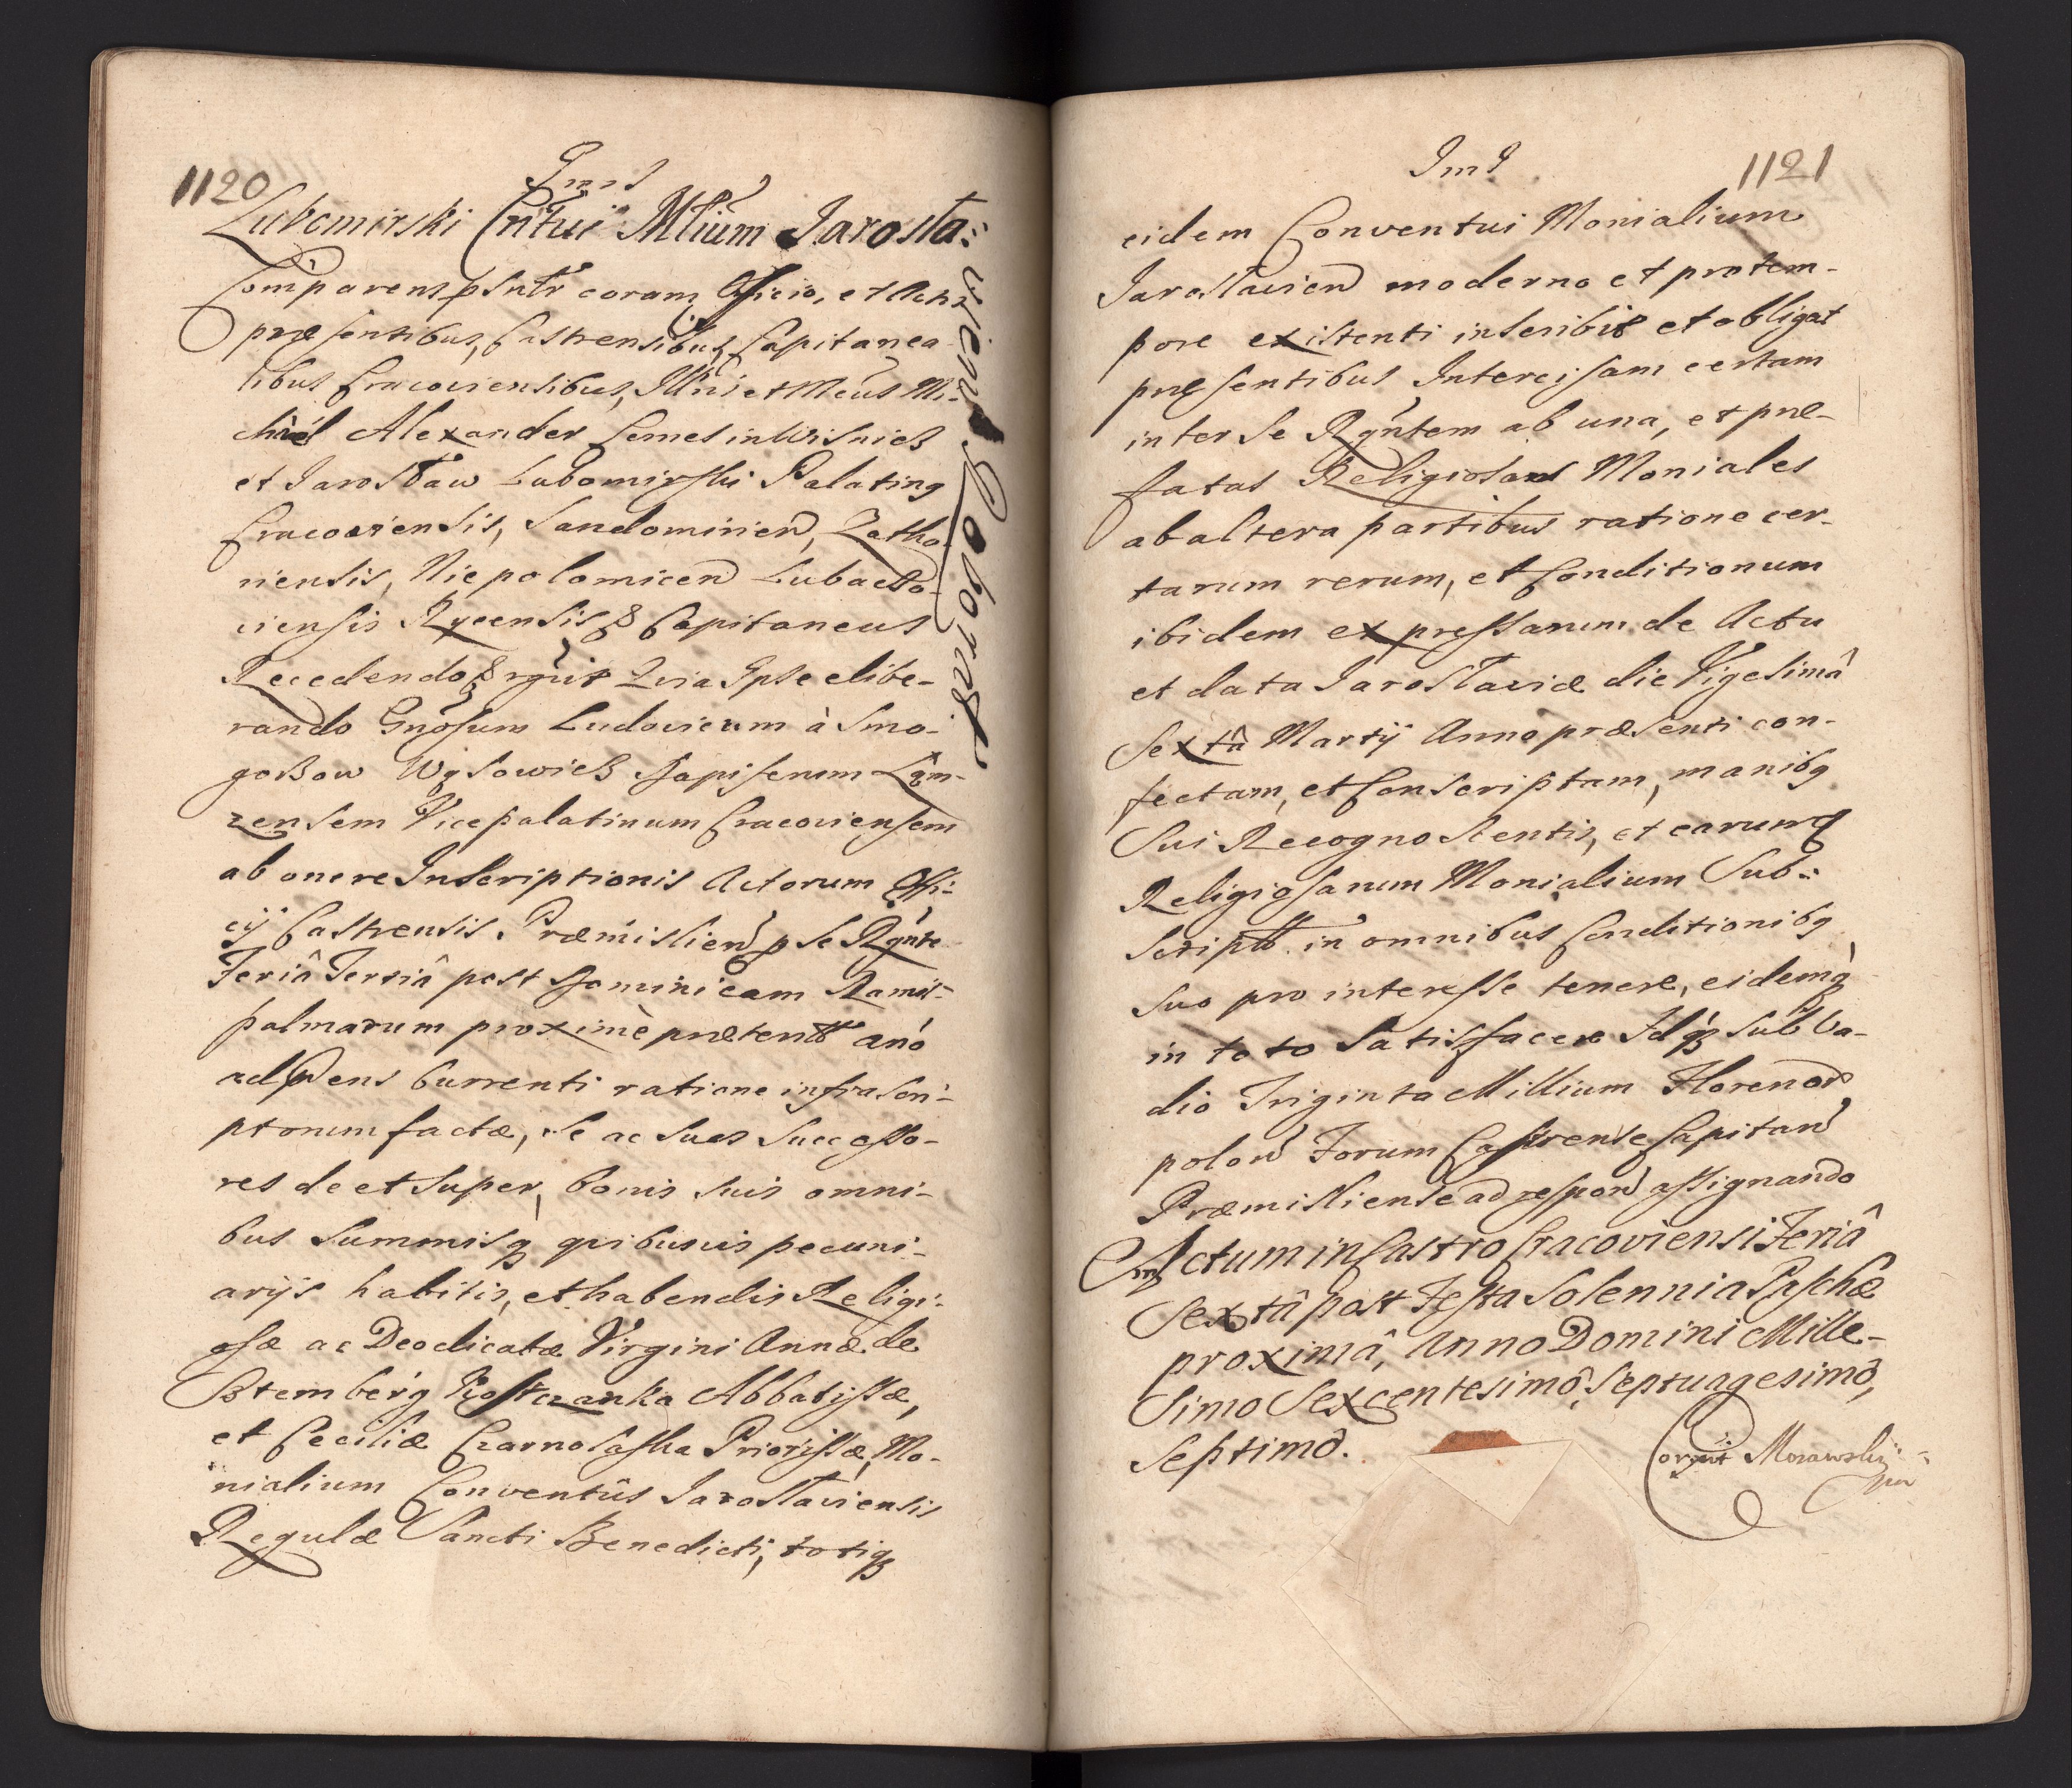 1120
Lubomirski Cntui Mlium Jarosta:
viend Roborat
Comparens psntr coram Officio, et Actis
præsentibus, Castrensibus, Capitanea
libus Cracoviensibus, Illris et Mcus Mi-
chael Alexander Comes in Wisnicz
et Jarosław Lubomirski Palating
Cracoviensis, Sandomirien,
niensis, Niepolomicen Lubaczo-
viensis Rycensis Capitaneus
Recedendo rgnit Quia Ipse elibe-
rando Gnosum Ludovicum à Smo-
goszow Wąsowicz Dapiferum Łom-
zensem Vicepalatinum Cracoviensem
ab onere Inscriptionis Actorum Offi-
cij Castrensis Præmislien p se Rgnte
Feriâ Tertiâ post Dominicam Ramis-
palmarum proximè præterit anó
ad præns currenti ratione infrascri-
ptorum factæ, se ac suos Successo-
res de et super bonis suis omni-
bus Summisq quibusvis pecuni-
arijs habitis, et habendis Religi-
osæ ac Deo dicatæ Virgini Annæ de
Sztemberg Kostczanka Abbatissæ,
et Ceciliæ Czarnolaska Priorissæ, Mo-
nialium Conventûs Jarosłaviensis
Regulæ Sancti Benedicti, totiq
1121
eidem Conventui Monialium
Jarosłavien moderno et protem-
pore existenti inscribit et obligat
præsentibus Intercisam certam
inter se Rgntem ab una, et præ-
fatas Religiosas Moniales
ab altera partibus ratione cer-
tarum rerum, et Conditionum
ibidem expressarum de Actu
et data Jarosłaviæ die Vigesimâ
Sextâ Martij Anno præsenti con-
fectam, et Conscriptam, manibq
Sui Recognoscentis, et earumq
Religiosarum Monialium Sub-
script in omnibus Conditionibq
suo pro interesse tenere, eidemq
in toto Satisfacere Idq sub va-
dio Triginta Millium Floren
polon Forum Castrense Capitan
Præmisliense ad respon assignando
Actum in Castro Cracoviensi Feriâ
Sextâ post Festa Solennia Paschæ
proximâ, Anno Domini Mille-
simo Sexcentesimô Septuagesimô,
Septimô.
Corrxit Morawski